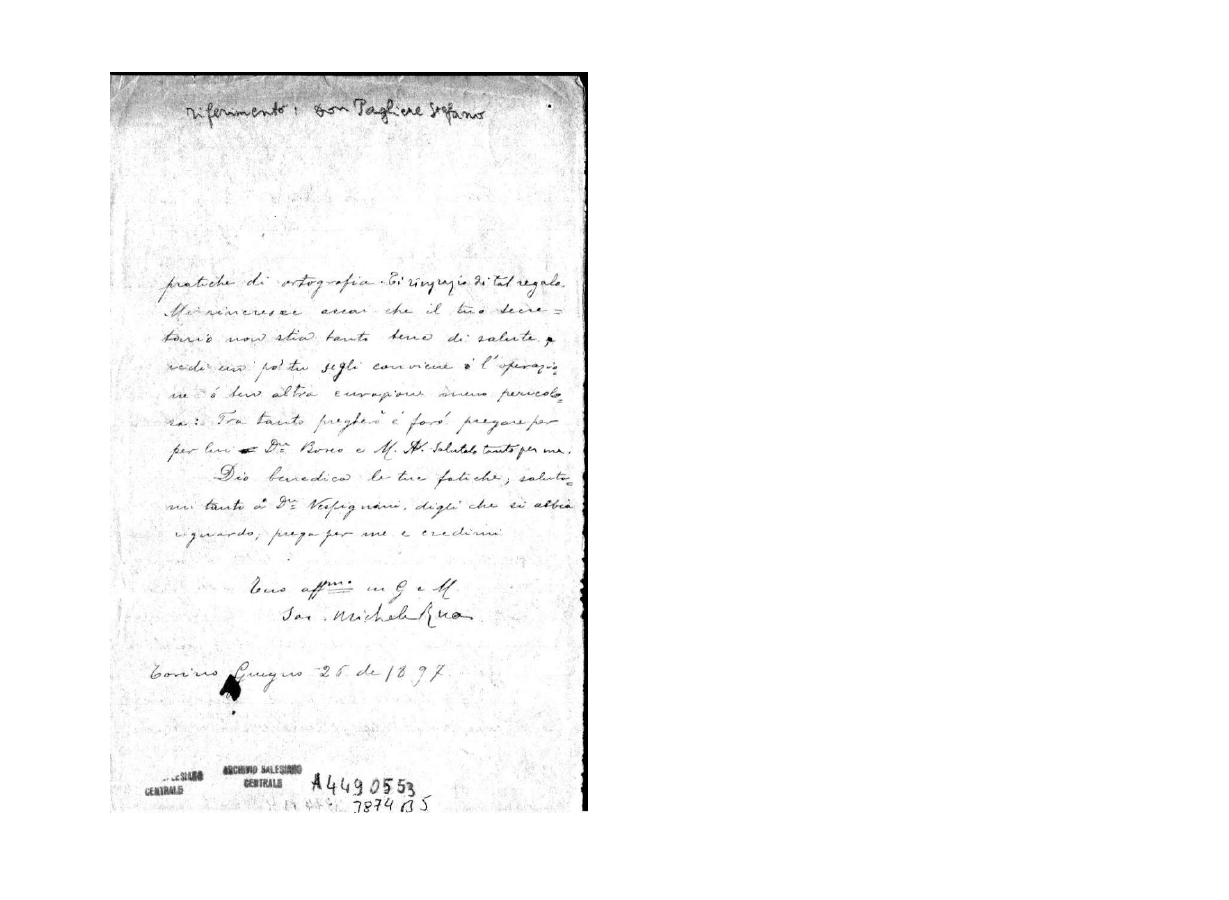 riferimento: Don Pagliere Stefano
pratiche di ortografia. Ti ringrazio di tal regalo.
Mi rincresce assai che il tuo secre=
tario non stia tanto bene di salute,
vedi un po' tu segli conviene o l'operazio=
ne ó ben altra curagione meno pericolo=
sa: Tra tanto pregherò é faró pregare per
per lui Dn Bosco e M. A. Salutalo tanto per me.
Dio benedica le tue fatiche, saluta=
mi tanto á Dn Vespignani, digli che si abbia
riguardo, prega per me e credimi
Tuo affmo. in G e M
Sac. Michele Rua
Torino Giugno 26 de 1897.
LESIANO
CENTRALE
ARCHIVIO SALESIANO
CENTRALE
A4490553
3874 B5